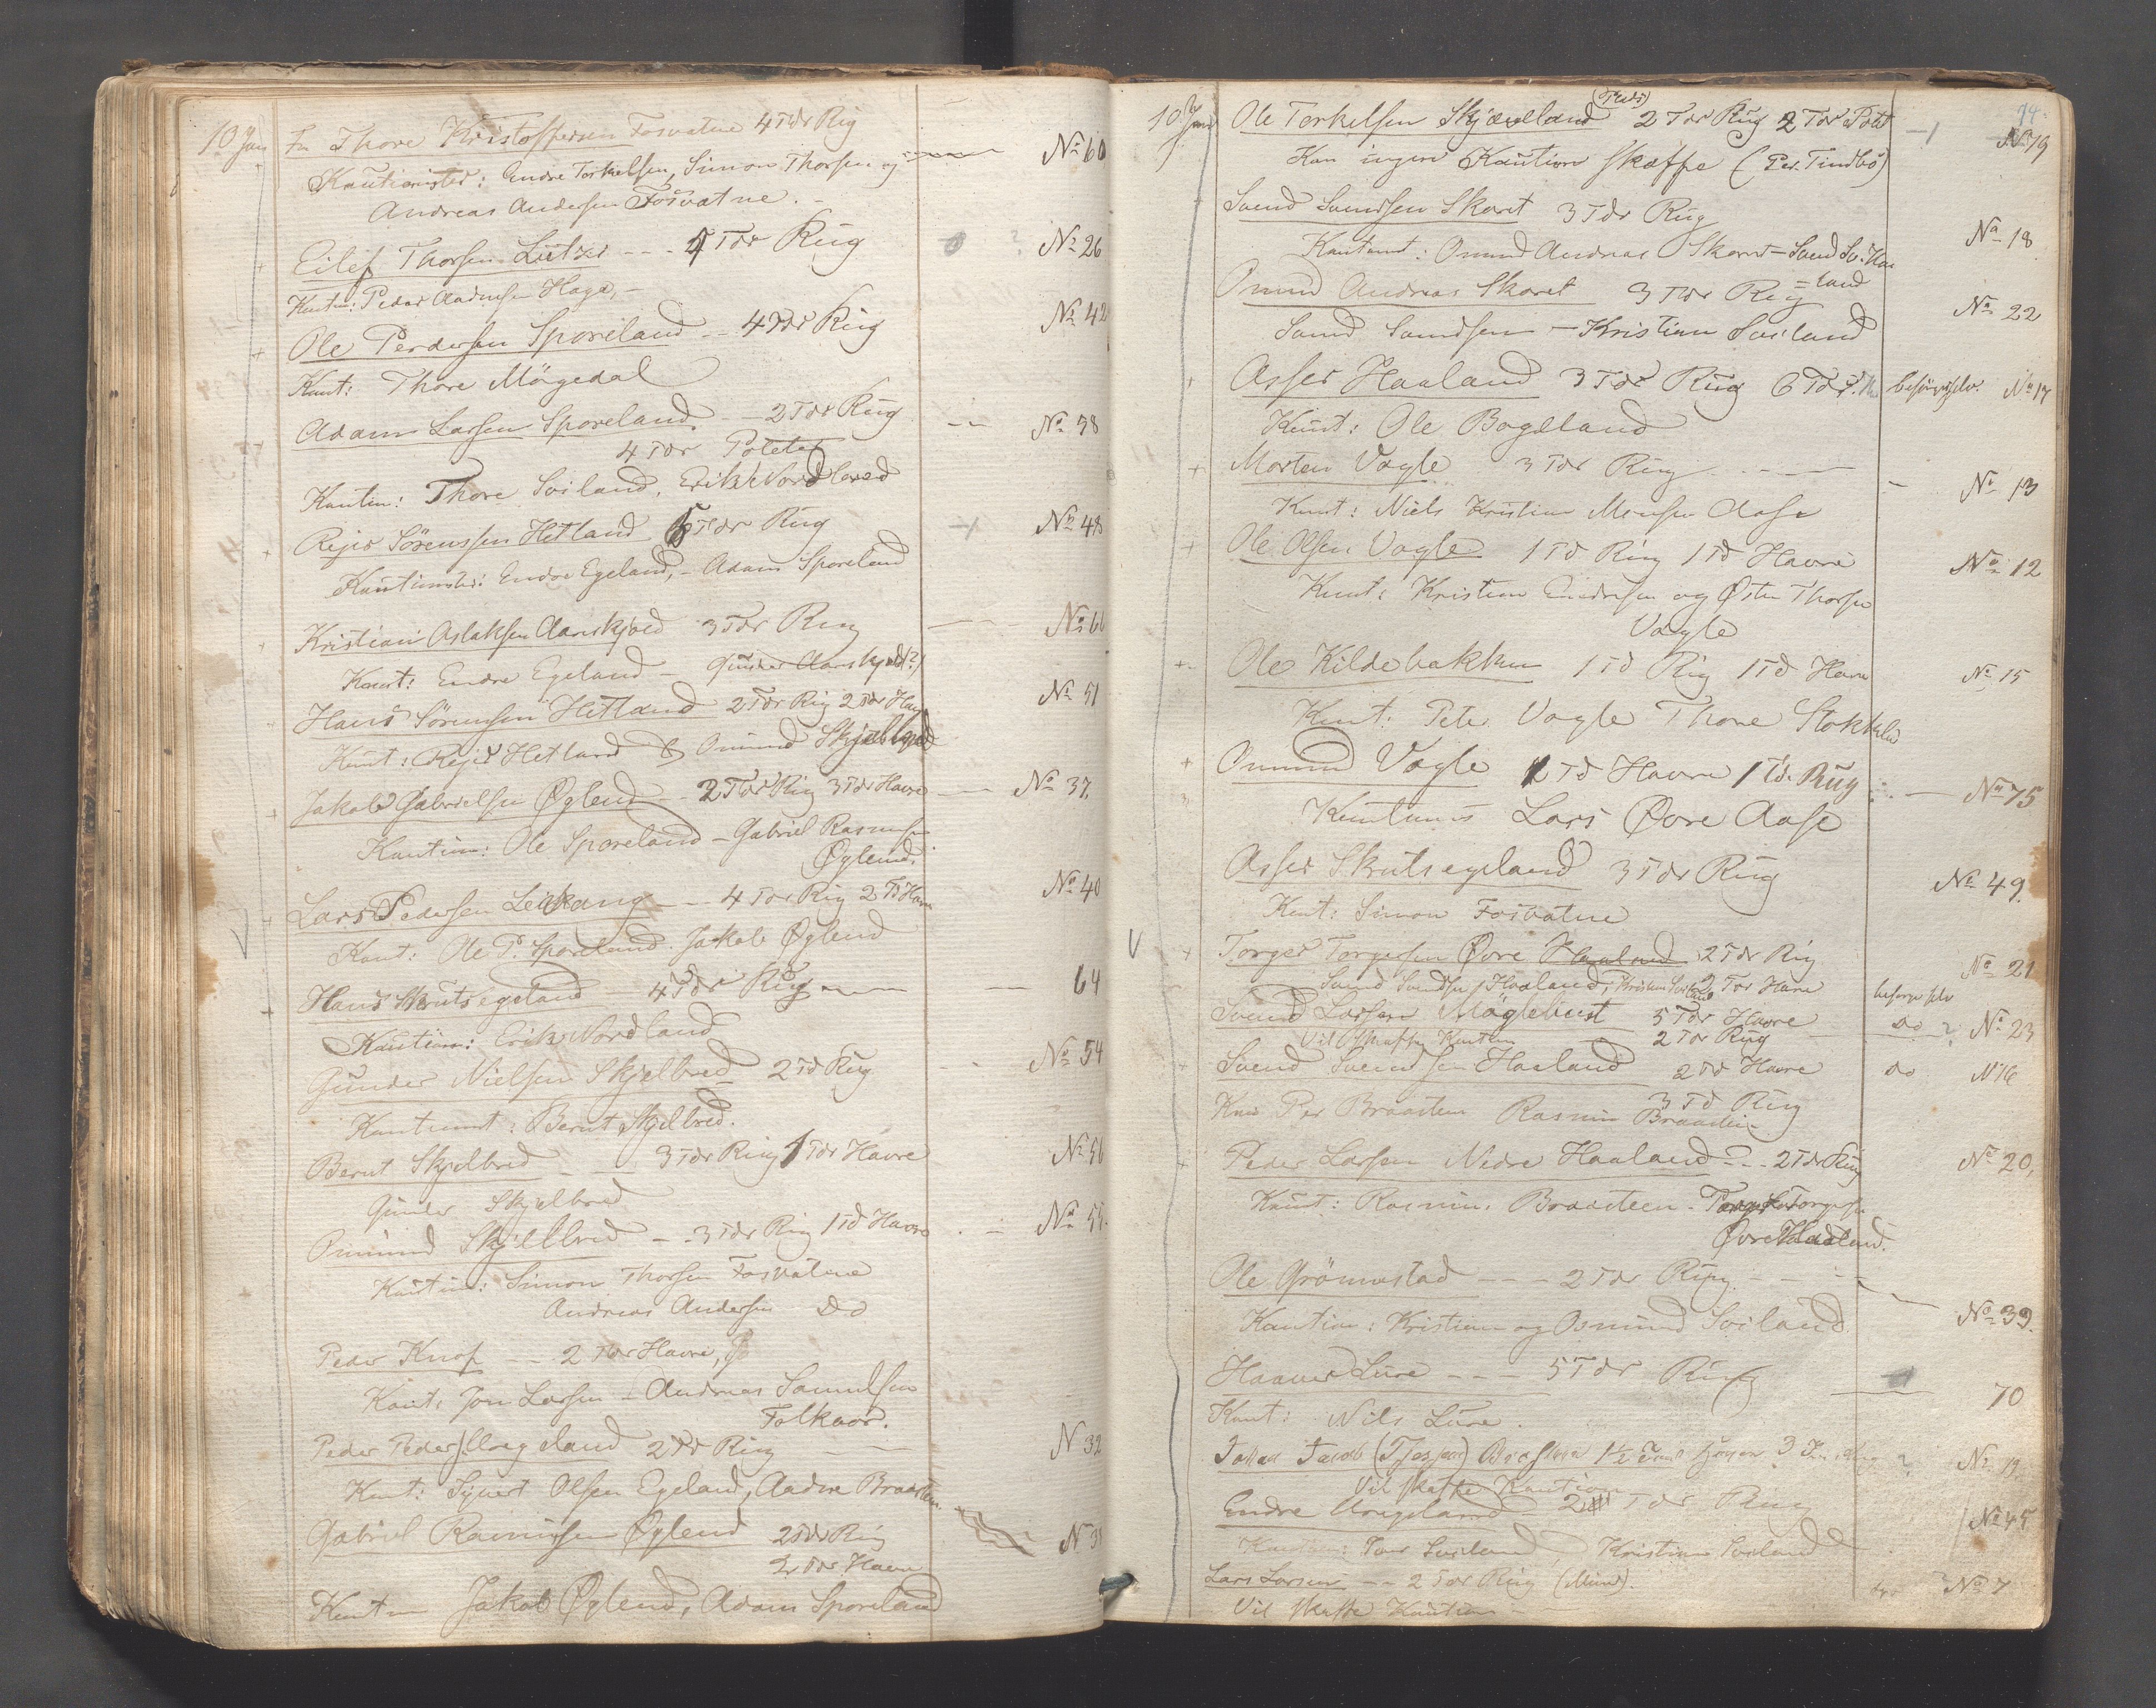 10 Jan Fr Thore Kristoffersen Fosvatne 4 Tdr Rug
Kautionister: Endre Torkelsen, Simon Thorsen og No 60
Andreas Andersen Fosvatne.
Eilef Thorsen --- 4 Tdr Rug No 26
Kaution: Peder Aadnesen Haga,
Ole Pedersen Sporeland -- 4 Tdr Rug No 42
Kaut: Thore Mögedal
Adam Larsen Sporeland. -- 2 Tdr Rug No 38
4 Tdr Poteter
Kaution: Thore Soiland, Erik Nordland
Rejer Sörenssen Hetland 5 Tdr Rug No 48
Kautionister: Endre Egeland, - Adam Sporeland
Kristian Aslaksen Aarskjoed 3 Tdr Rug No 66
Kaut: Endre Egeland - Gunder Aarskjold?
Hans Sörensen Hetland 2 Tdr Rug 2 Tdr Hav No 51
Kaut: Rejer Hetland & Omund Skjelbred
Jakob Gabrielsen Øglend -- 2 Tdr Rug 3 Tdr Havre No 37.
Kaution: Ole Sporeland - Gabriel Rasmusen
Øglend.
Lars Pedersen Leikang -- 4 Tdr Rug 2 Td Havre No 40
Kaut: Ole P. Sporeland. Jakob Øglend
Hans Skrutsegeland 4 Tdr Rug 64
Kaution: Erik Nordland
Gunder Nielsen Skjelbred 2 Td Rug No 54
Kautionist: Bernt Skjelbred.
Bernt Skjelbred -- 3 Tdr Rug 1 Tdr Havre No 56
Gunder Skjelbred
Omund Skjelbred - 3 Tdr Rug 1 Td Havre No 55.
Kaution: Simon Thorsen Fosvatne
Andreas Andersen Do
Peder Knof -- 2 Tdr Havre,
Kaut: Jon Larsen - Andreas Samuelsen
Folkvor.
Peder Peders. Aregeland 2 Td Rug N 32
Kaut: Sjvert Olsen Egeland, Aadne Braasten
Gabriel Rasmusen Øglend 2 Tdr Rug N 38
2 Tdr Havre
Kaution Jakob Øglend, Adam Sporeland
74.
10 Jan Ole Terkelsen Skjæveland (Reds) 2 Tdr Rug 2 Tdr Potet No 79
Kan ingen Kaution skaffe (Per. Tindbö)
Svend Svendsen Skaret 3 Tdr Rug No 18
Kautionist: Omund Andreas Skaret - Svend Sv. Haa
land
Omund Andreas Skaret 3 Tdr Rug No 22
Svend Svendsen - Kristian Soiland
Asser Haaland 3 Tdr Rug 6 Tdr. besörges selv. No 17
Kaut: Ole Bogeland
Morten Vagle 3 Tdr Rug No 13
Kaut: Niels Kristian Monsen Aase
Ole Olsen Vagle 1 Td Rug 1 Td Havre No 12
Kaut: Kristian Endresen og Østen Thorsen
Vagle
Ole Kildebakken 1 Td Rug 1 Td Havre No 15
Kaut: Peter Vagle Thore Stokkeland
Omund Vagle 2 Td Havre 1 Td. Rug No 75
Kautionis Lars Øvre Aase
Asser Skrutsegeland 3 Tdr Rug No 49.
Kaut: Simon Fosvatne
Torger Torgersen Øvre Haaland 2 Tdr Rug No 21
Svend Svendsen Haaland, Kristian Soiland 2 Tdr Havre
Svend Larsen Möglebust 5 Tdr Havre besörge selv
Vil skaffe Kaution 2 Tdr Rug Do ? No 23
Svend Svendsen Haaland 2 Td Havre Do N 16
3 Td Rug
Kau Per Braasten Rasmus Braasten
Peder Larsen Nedre Haaland -- 2 Tdr Rug No 20,
Kaut: Rasmus Braasteen - Torger Torgersen
Øvre Haaland.
Ole Grönnestad --- 2 Tdr Rug No 39.
Kaution: Kristian og Osmund Soiland
Haaver Lure --- 5 Tdr Rug 70
Kaut: Nils Lure
Johan Jacob 1½ Tønde 3 ? No 19
Vil skaffe Kaution
Endre Aregeland - 2 Tdr Rug No 45
Kaution: Tore Soiland Kristian Soiland
Lars Larsen -- 2 Tdr Rug (Mund). No 7
Vil skaffe Kaution